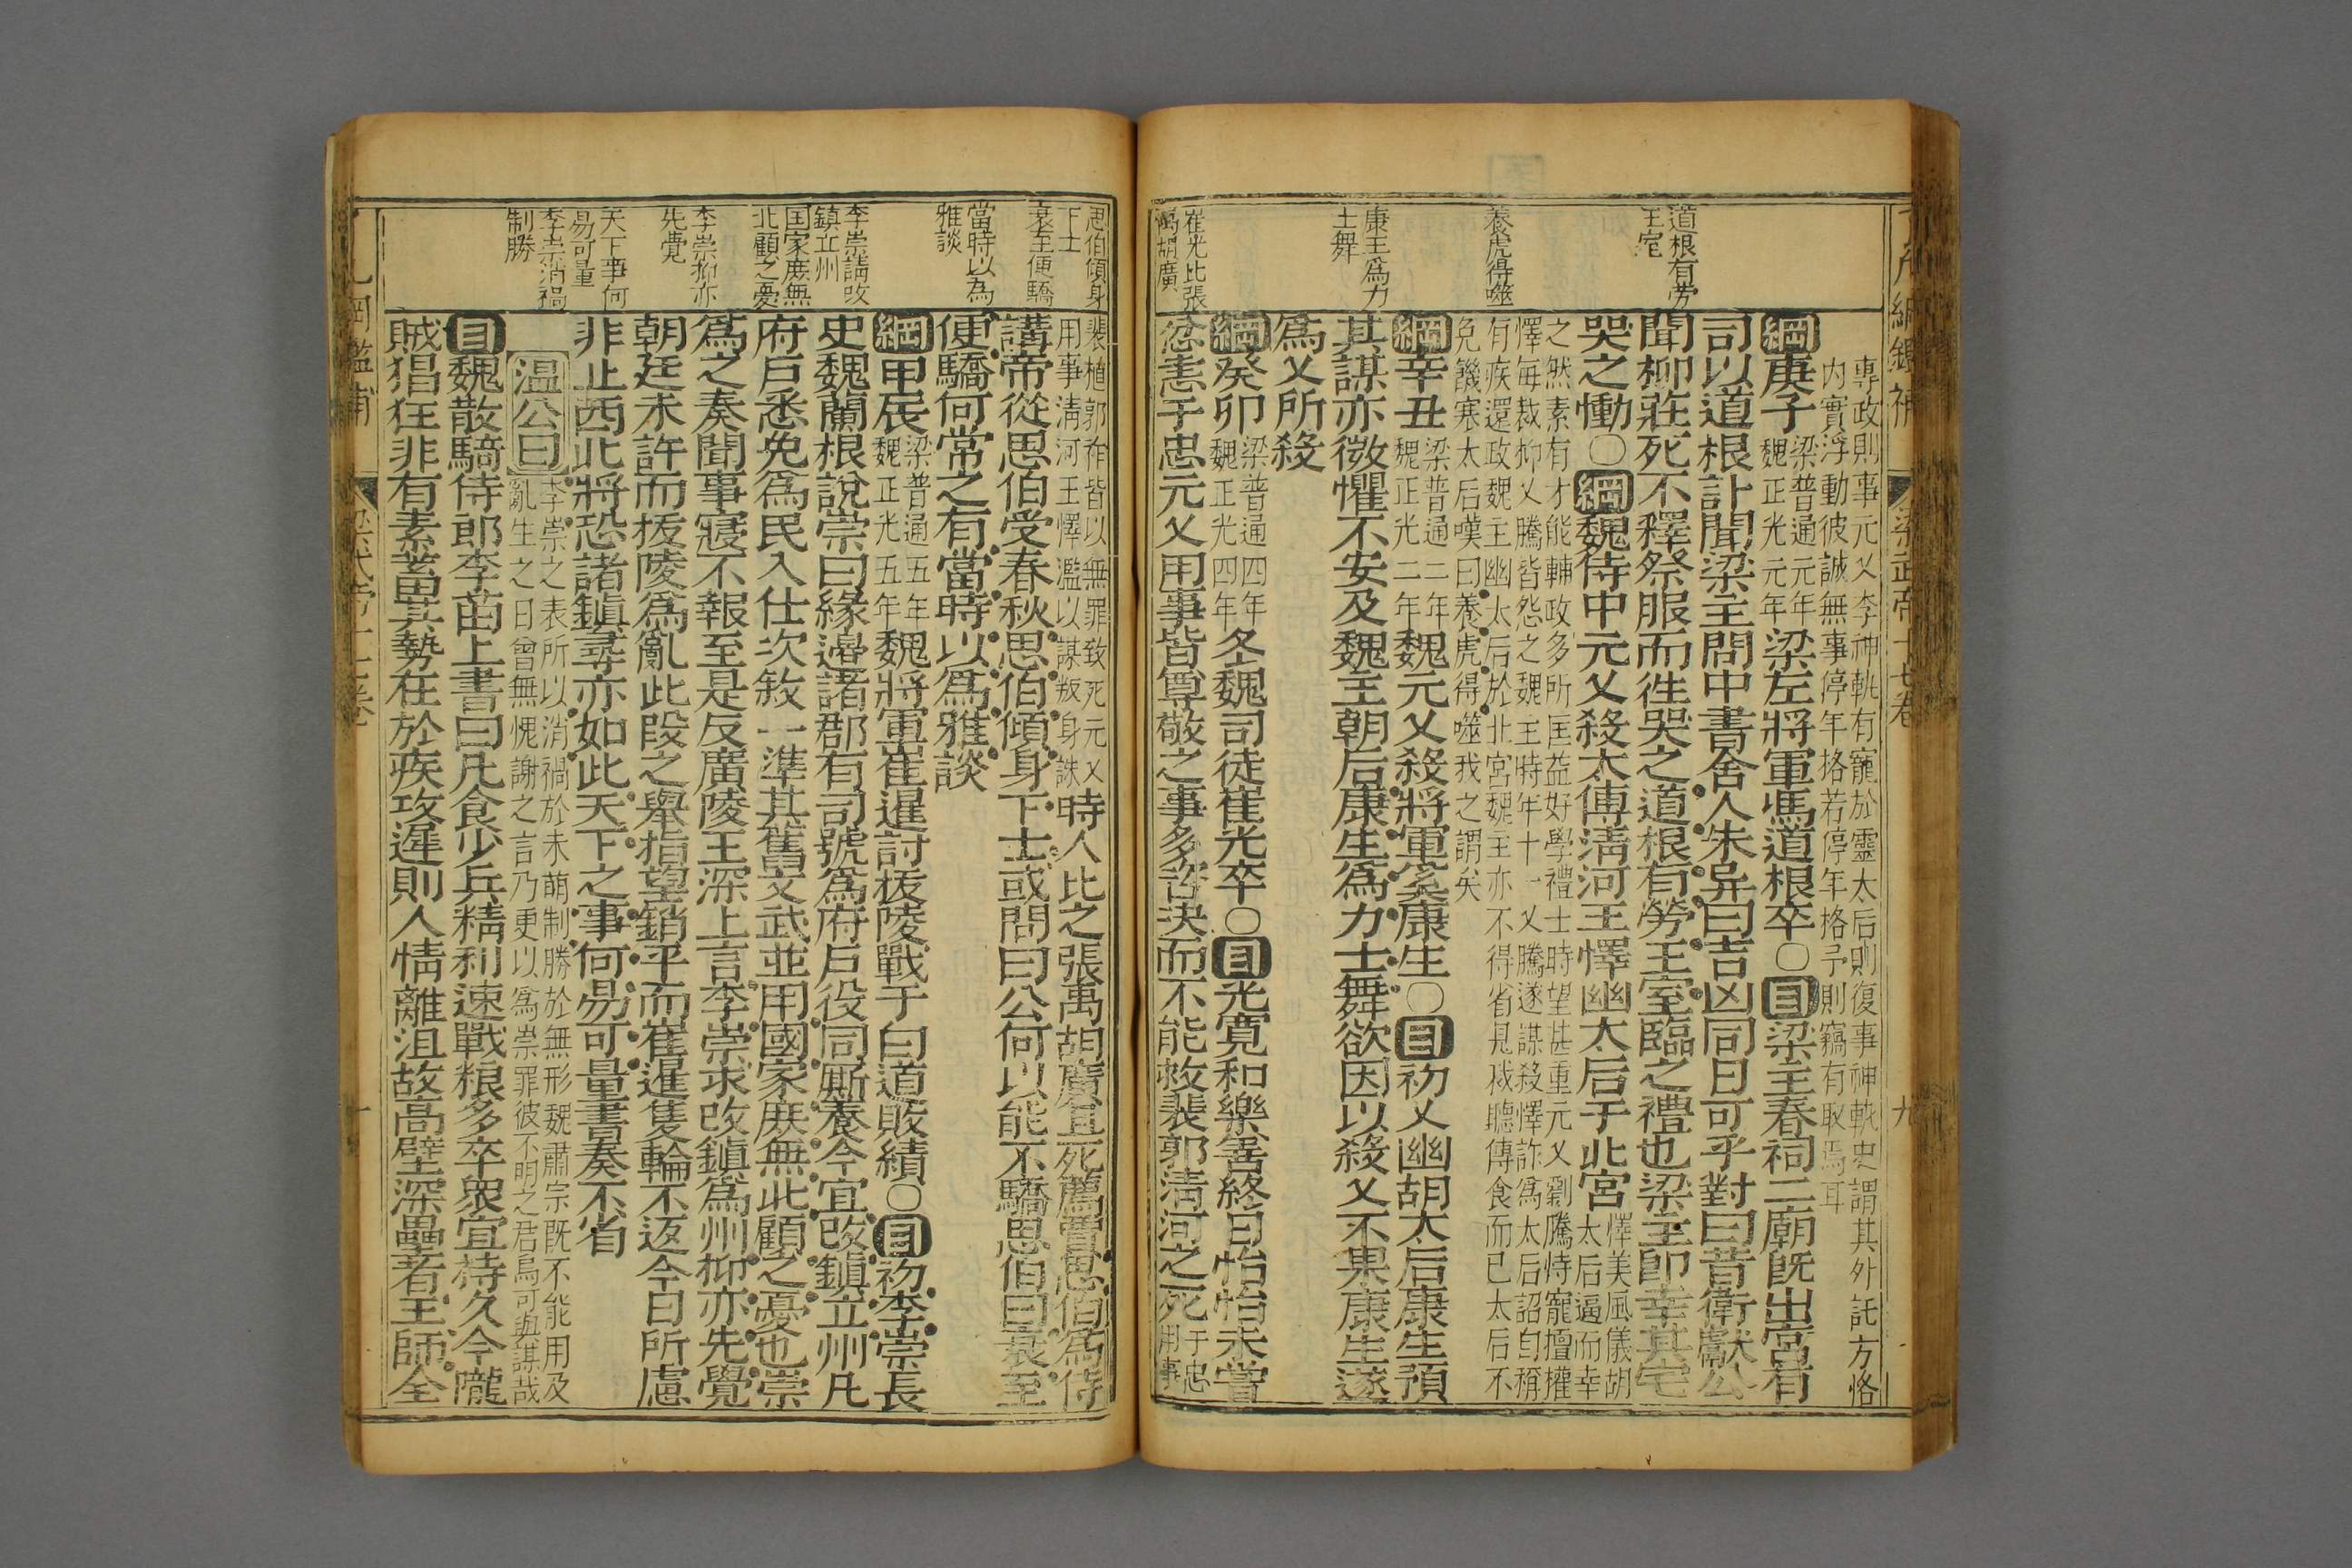 道根有劳
王室
養虎得噬
康王爲力
士舞
崔光比張
禹胡廣
專政則事元乂李神軌有寵於靈太后則復事神軌史謂其外託方恪
内實浮動彼誠無事停年挌若停年格予則竊有取焉耳
綱庚子梁普通元年魏正光元年梁左將軍馮道根卒○目梁主春祠二廟既出宮有
司以道根訃聞梁主問中書舍人朱异曰吉凶同日可乎對曰昔衛獻公
聞柳莊死不釋祭服而徃哭之道根有勞王室臨之禮也梁主卽幸其宅
哭之慟○綱魏侍中元乂殺太傅清河王懌幽太后于北宮懌美風儀胡太后逼而幸
之然素有才能輔政多所匡益好學禮士時望甚重元乂劉騰恃寵擅權
懌每裁抑乂騰皆怨之魏主時年十一乂騰遂謀殺懌詐爲太后詔自稱
有疾還政魏主幽太后於北宮魏主亦不得省見裁聽傳食而已太后不
免饑寒太后嘆曰養虎得噬我之謂矣
綱辛丑梁普通二年魏正光二年魏元乂殺將軍奚康生○目初乂幽胡太后康生預
其謀亦微懼不安及魏主朝后康生爲力士舞欲因以殺乂不果康生遂
爲乂所殺
綱癸卯梁普通四年魏正光四年冬魏司徒崔光卒○目光寛和樂善終日怡怡未嘗
忿恚于忠元乂用事皆尊敬之事多咨決而不能救裴郭清河之死于忠用事
思伯傾身
下士
衰至便驕
當時以為
雅談
李崇請改
鎮立州
国家庶無
北顧之憂
李崇抑亦
先覺
天下事何
易可量
李崇消禍
制勝
裴植郭祚皆以無罪致死元乂用事清河王懌濫以謀叛身誅時人比之張禹胡廣且死薦賈思伯爲侍
講帝從思伯受春秋思伯傾身下士或問曰公何以能不驕思伯曰衰至
便驕何常之有當時以爲雅談
綱甲辰梁普通五年魏正光五年魏將軍崔暹討拔陵戰于白道敗績○目初李崇長
史魏蘭根說崇曰緣邊諸郡有司號爲府戶役同厮養今宜改鎮立州凡
府戶悉免爲民入仕次敘一準其舊文武並用國家庶無北顧之憂也崇
爲之奏聞事寢不報至是反廣陵王深上言李崇求改鎮爲州抑亦先覺
朝廷未許而拔陵爲亂此段之舉指望銷平而崔暹隻輪不返今日所慮
非止西北將恐諸鎮尋亦如此天下之事何易可量書奏不省
温公曰李崇之表所以消禍於未萌制勝於無形魏肅宗既不能用及
亂生之日曾無愧謝之言乃更以爲崇罪彼不明之君烏可與謀哉
目魏散騎侍郎李苗上書曰凡食少兵精利速戰粮多卒衆宜持久今隴
賊猖狂非有素蓄畀其勢在於疾攻遲則人情離沮故高壁深壘者王師全